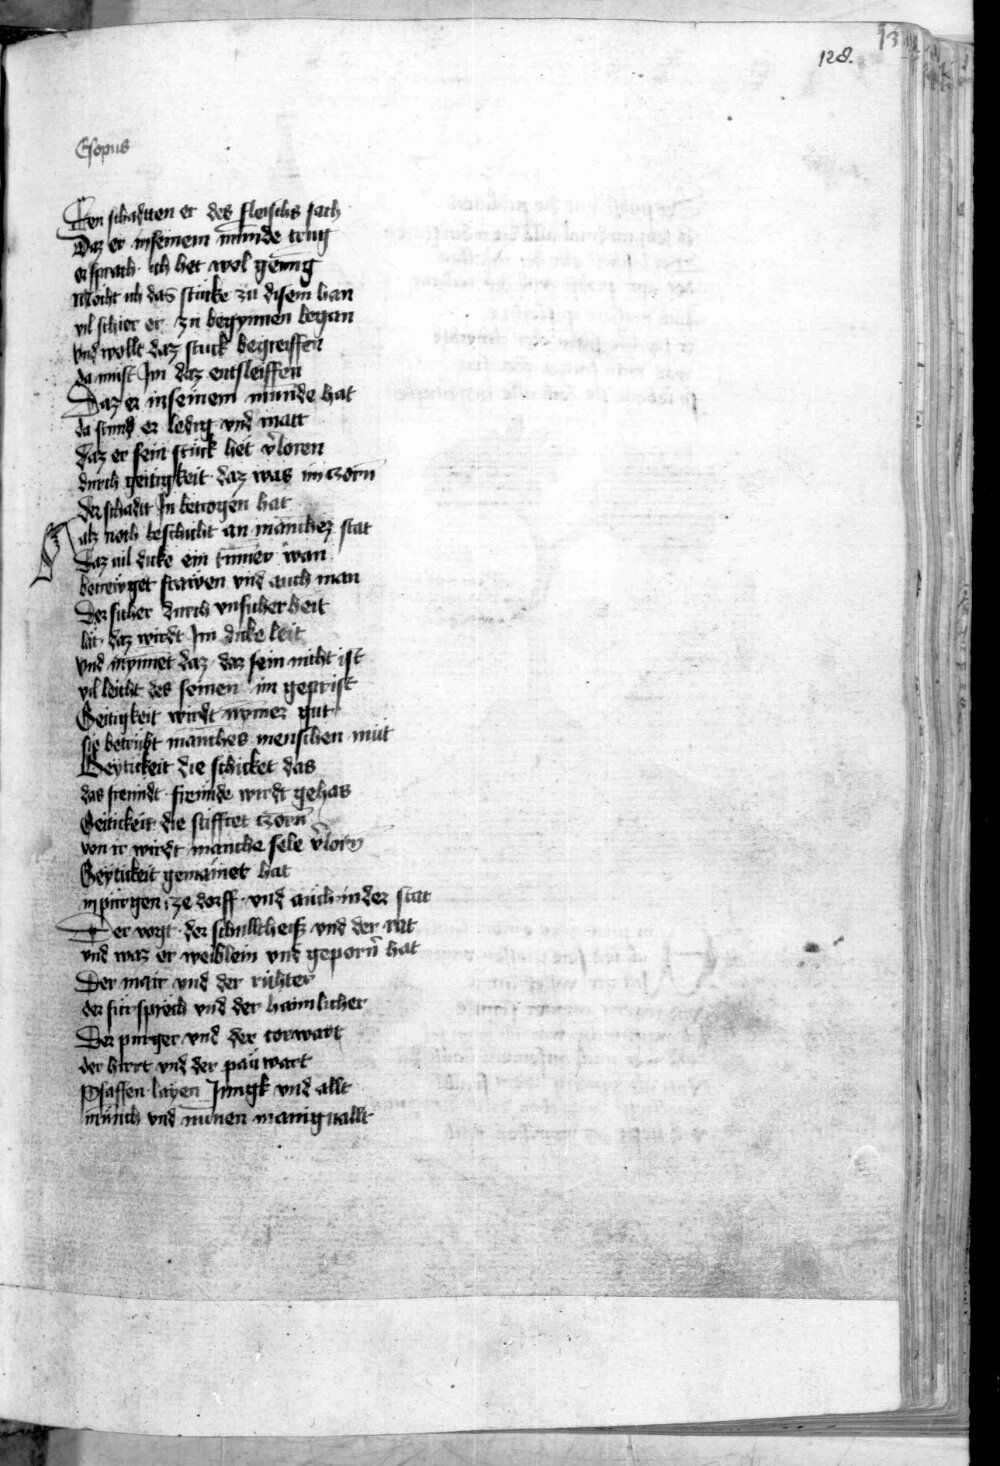 13
128.
Esopus
Den schadten er des fleischs sach
Daz er in seinem munde trug
er sprach ich het wol genug
Mocht ich das stucke zu disem han
vil schier er zu begynnen began
vnd wollt daz stuck begreiffen
da must Im daz entsleiffen
Daz er in seinem munde hat
da stund er ledig vnd matt
daz er sein stuck het v̄loren
durch geitigkeit daz was im zorn
der schadt In betrogen hat
alz noch beschicht an mancher stat
Daz vil dicke ein tummer wan
betreuget frawen vnd auch man
Der sicher durch vnsicherheit
lat daz wirdt Im dicke leit
vnd mynnet daz daz sein nicht ist
vil leicht des seinen im geprist
Geitigkeit wirdt nymer gut
sie betrubt manches menschen mut
Geytickeit die schicket das
das freundt freunde wirdt gehas
Geitickeit die stifftet zorn
von ir wirdt manche sele v̄lorn
Geytickeit gemainet hat
in purgen ze dorff vnd auch in der stat
Der vogt der schulltheiß vnd der rat
vnd waz er weiblein vnd geporn̄ hat
Der mair vnd der richter
der fürsprech vnd der haimlicher
Der purger vnd der torwart
der hirrt vnd der pauwart
Pfaffen layen Jungk vnd allt
münch vnd nunen maniguallt